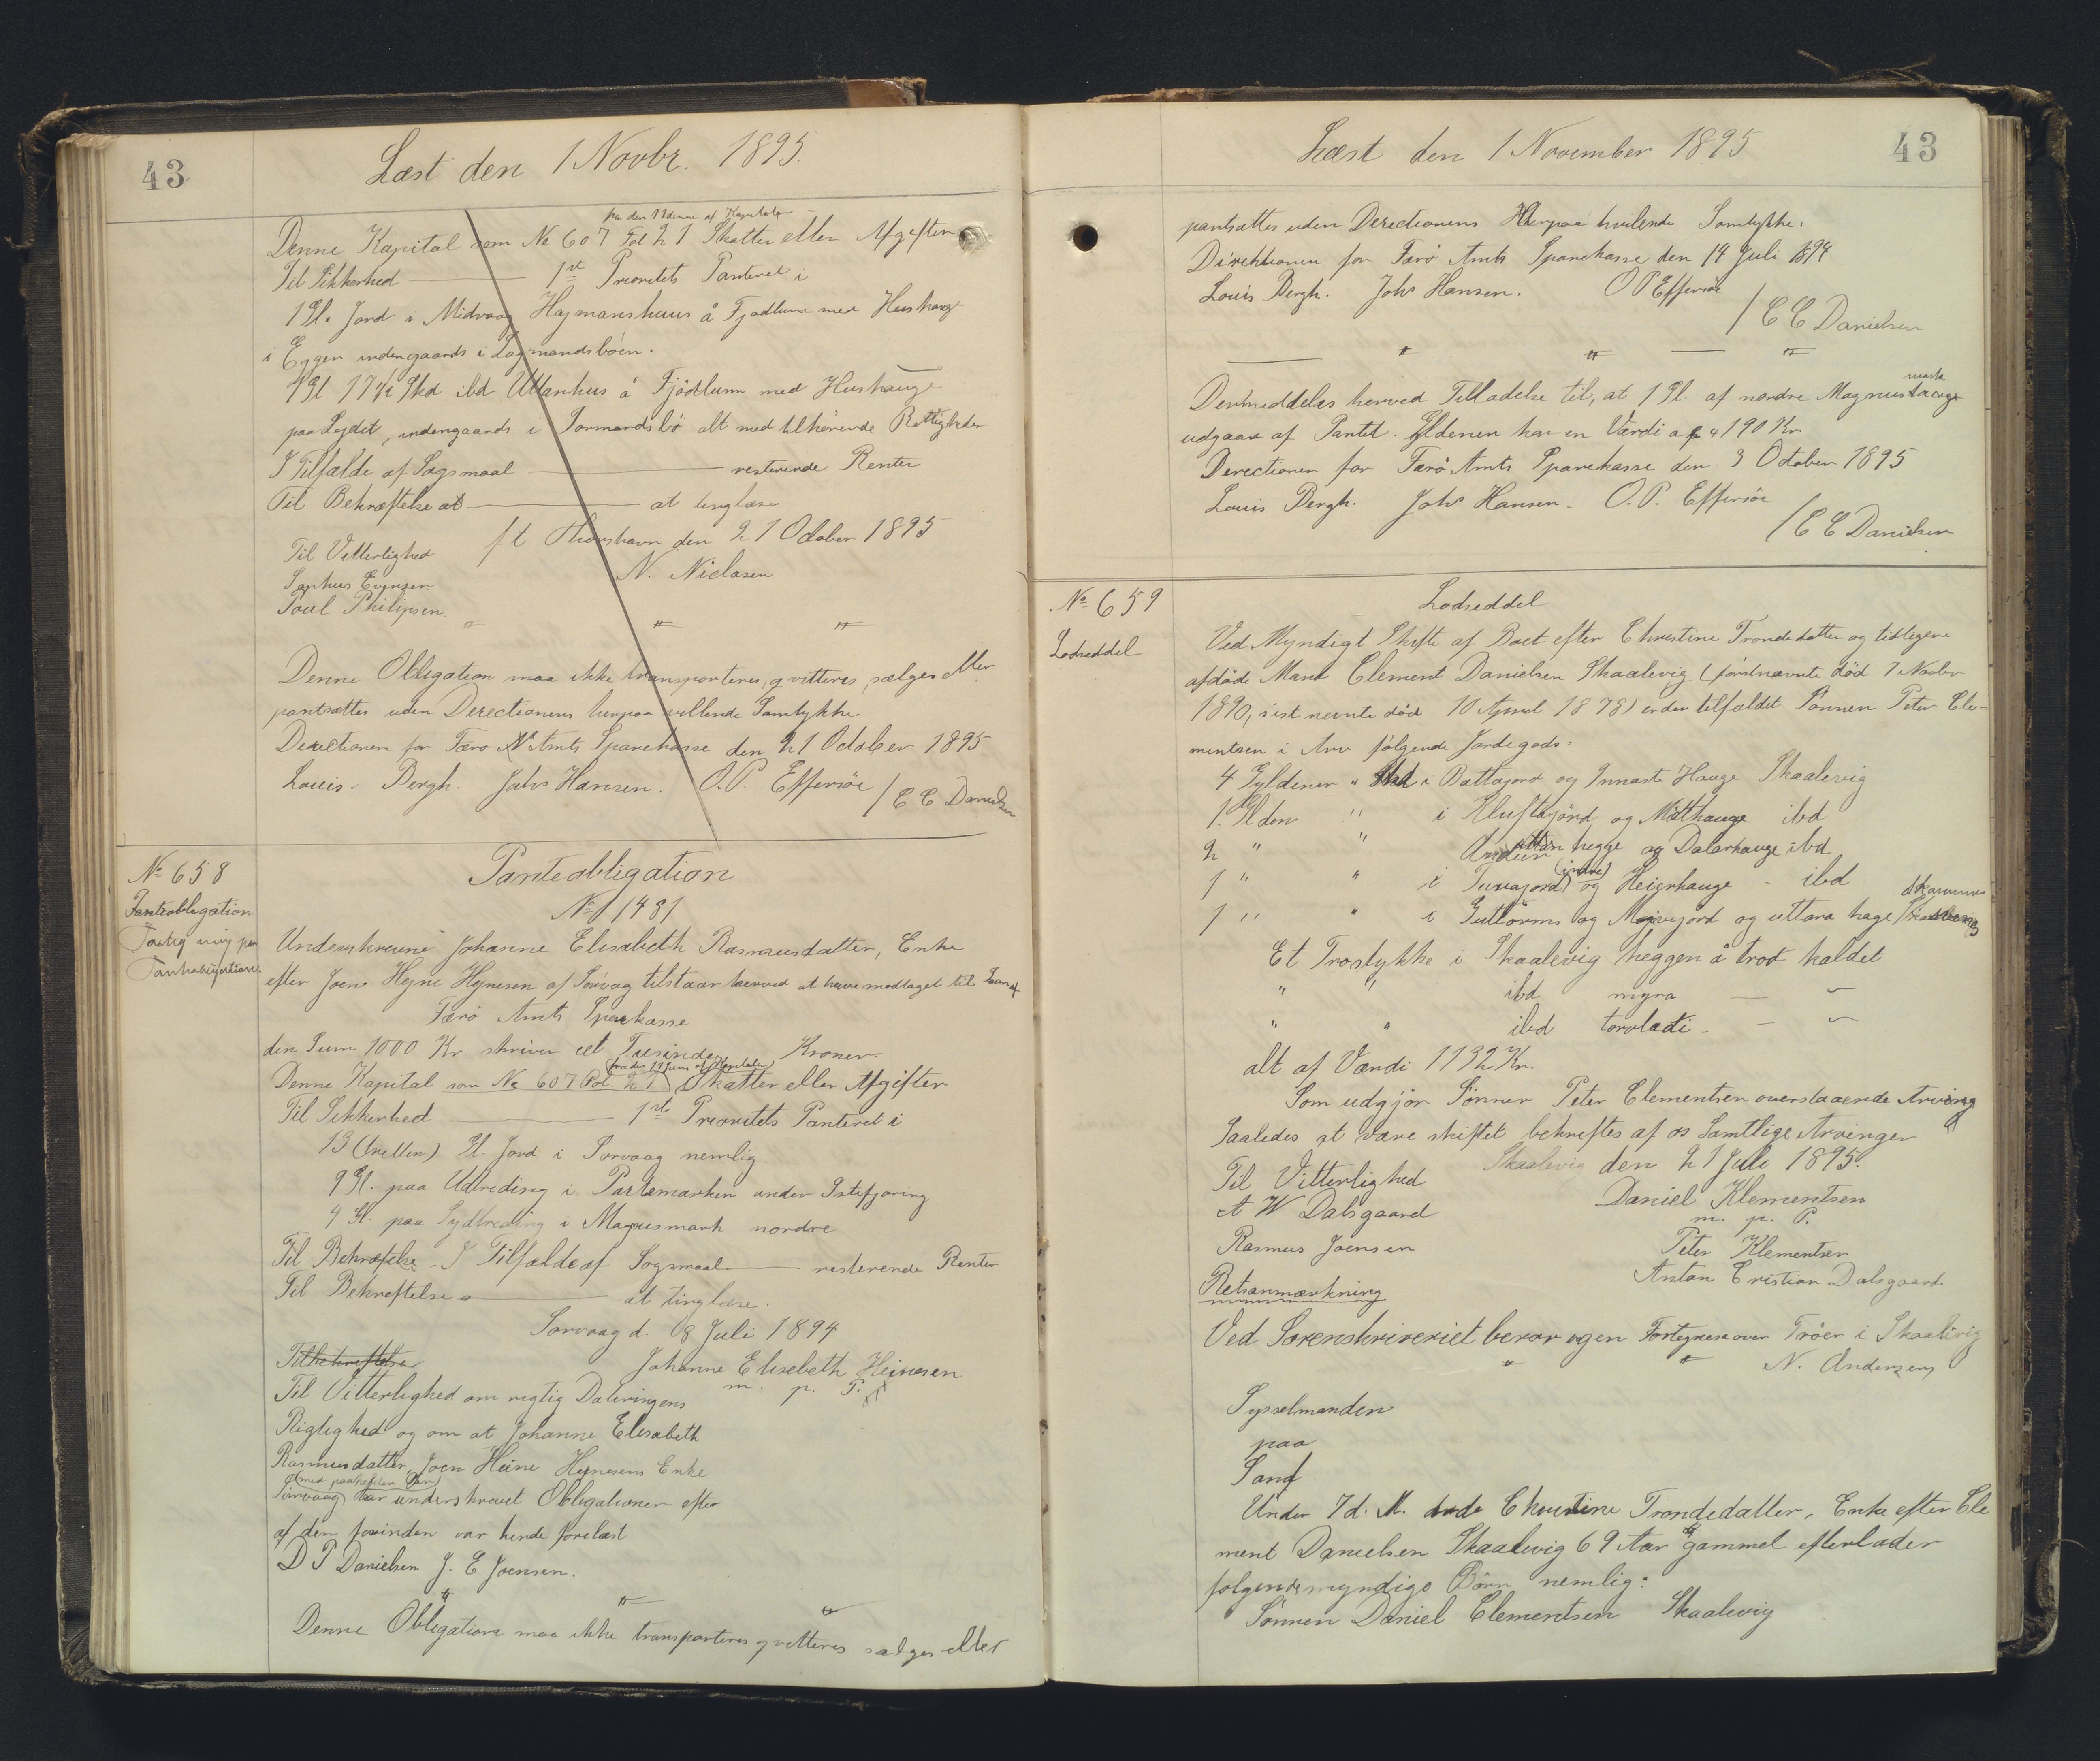 43
Læst den 1 Novbr. 1895.
fra den 11 denne af Kapitalen
Denne Kapital som No 607 Fol 21 Skatter eller Afgifter
Til Sikkerhed — 1ste Prioritets Panteret i
1 Gl. Jord i Midvaag Hajmanshuus å Fjødlum med Hushauge
i Eggen indengaards i Lagmandsbøen.
1 Gl 17½ Skd ibd Uttanhus å Fjødlum med Hushauge
paa Lejdit, indengaards i Tormandsbö alt med tilhörende Rettigheder
I Tilfælde af Sagsmaal — resterende Renter
Til Bekræftelse at — at tinglæse
f. t. Thorshavn den 21 October 1895
Til Vitterlighed
N. Niclasen
Sanhus Evensen
Poul Philipsen.
Denne Obligation maa ikke transporteres, qvitteres, sælges eller
pantsættes uden Directionens herpaa Samtykke
Directionen for Færø Amts Sparekasse den 21 October 1895
Louis Bergh. Johs Hansen. O. P. Effersöe / C C Danielsen
No 658
Panteobligation
Panteobligation
No 1431
Underskrevne Johanne Elisabeth Rasmusdatter, Enke
efter Joen Hejne Hejnesen af Sörvaag tilstaar herved at have modtaget til Laan af
Færö Amts Sparekasse
den Sum 1000 Kr skriver et Tusinde Kroner.
(fra den 11 Juni af Kapitalen)
Denne Kapital som No 607 Fol. 21 Skatter eller Afgifter
Til Sikkerhed — 1ste Prioritets Panteret i
13 (tretten) Gl. Jord i Sörvaag nemlig
9 Gl. paa Udtreding i Partemarken under
4 Gl. paa Sydtreding i Magnusmark nordre
Til Bekræftelse I Tilfælde af Sagsmaal — resterende Renter
Til Bekræftelse — at tinglæse.
Sorvaag d. 8 Juli 1894
Til bekræftelse
Johanne Elisebeth Heinesen
m. p. P.
Til Vitterlighed om rigtig Dateringens
Rigtighed og om at Johanne Elisabeth
Rasmusdatter, Joen Heine Hejnesens Enke
(med paaholden Pen)
Sörvaag har underskrevet Obligationen efter
at den forinden var hende forelæst
D P Danielsen J. E Joensen.
Denne Obligation maa ikke transporteres qvitteres sælges eller
Læst den 1 November 1895
43
pantsættes uden Directionens Herpaa Samtykke.
Direktionen for Færö Amts Sparekasse den 14 Juli 1894
Louis Bergh. Johs Hansen. O P Effersöe
/ C C Danielsen
mark
Dermeddeles herved Tilladelse til, at 1 Gl. af nordre Magnus
udgaar af Pantet. Gyldenen har en Værdi af 190 Kr.
Directionen for Færö Amts Sparekasse den 3 October 1895
Louis Bergh. Johs Hansen. O. P. Effersöe
/ C C Danielsen
No 659
Lodseddel
Lodseddel
Ved Myndigt Skifte af Boet efter Christine Trondedatter og tidligere
afdöde Mand Clement Danielsen Skaalevig (förstnævnte död 7 Novbr
1890, sidst nævnte död 10 April 1878) er der tilfaldet Sönnen Peter Cle-
mentsen i Arv følgende Jordegods:
4 Gyldener " Skd i Battajord og Innasta Hauge Skaalevig
1. Glden " i Kluftajörd og Mitthauge ibd
2 " " Undun hegge og Dalarhauge ibd
(indre)
1 " " i og Heierhauge - ibd
1 " " i Guttorms og jord og uttara hage
Et Trostykke i Skaalevig heggen á trod kaldet
" " ibd myra
" " ibd torvladi
alt af Værdi 1132 Kr.
Som udgjør Sönnen Peter Clementsen overstaaende Arving
Saaledes at være skiftet bekræftes af os Samtlige Arvinger
Skaalevig den 21 Juli 1895.
Til Vitterlighed
Daniel Klementsen
m. p. P.
A W Dalsgaard
Peter Klementsen
Rasmus Joensen
Anton Cristian Dalsgaard.
Retsanmærkning
Ved Sorenskriveriet beror ogen Fortegnese over Tröer i Skaalevig
N. Andersen
Sysselmanden
paa
Sand
Under 7 d. M. døde Christine Trondedatter, Enke efter Cle
ment Danielsen Skaalevig 69 Aar gammel efterlader
folgende myndige Börn nemlig:
Sönnen Daniel Clementsen Skaalevig